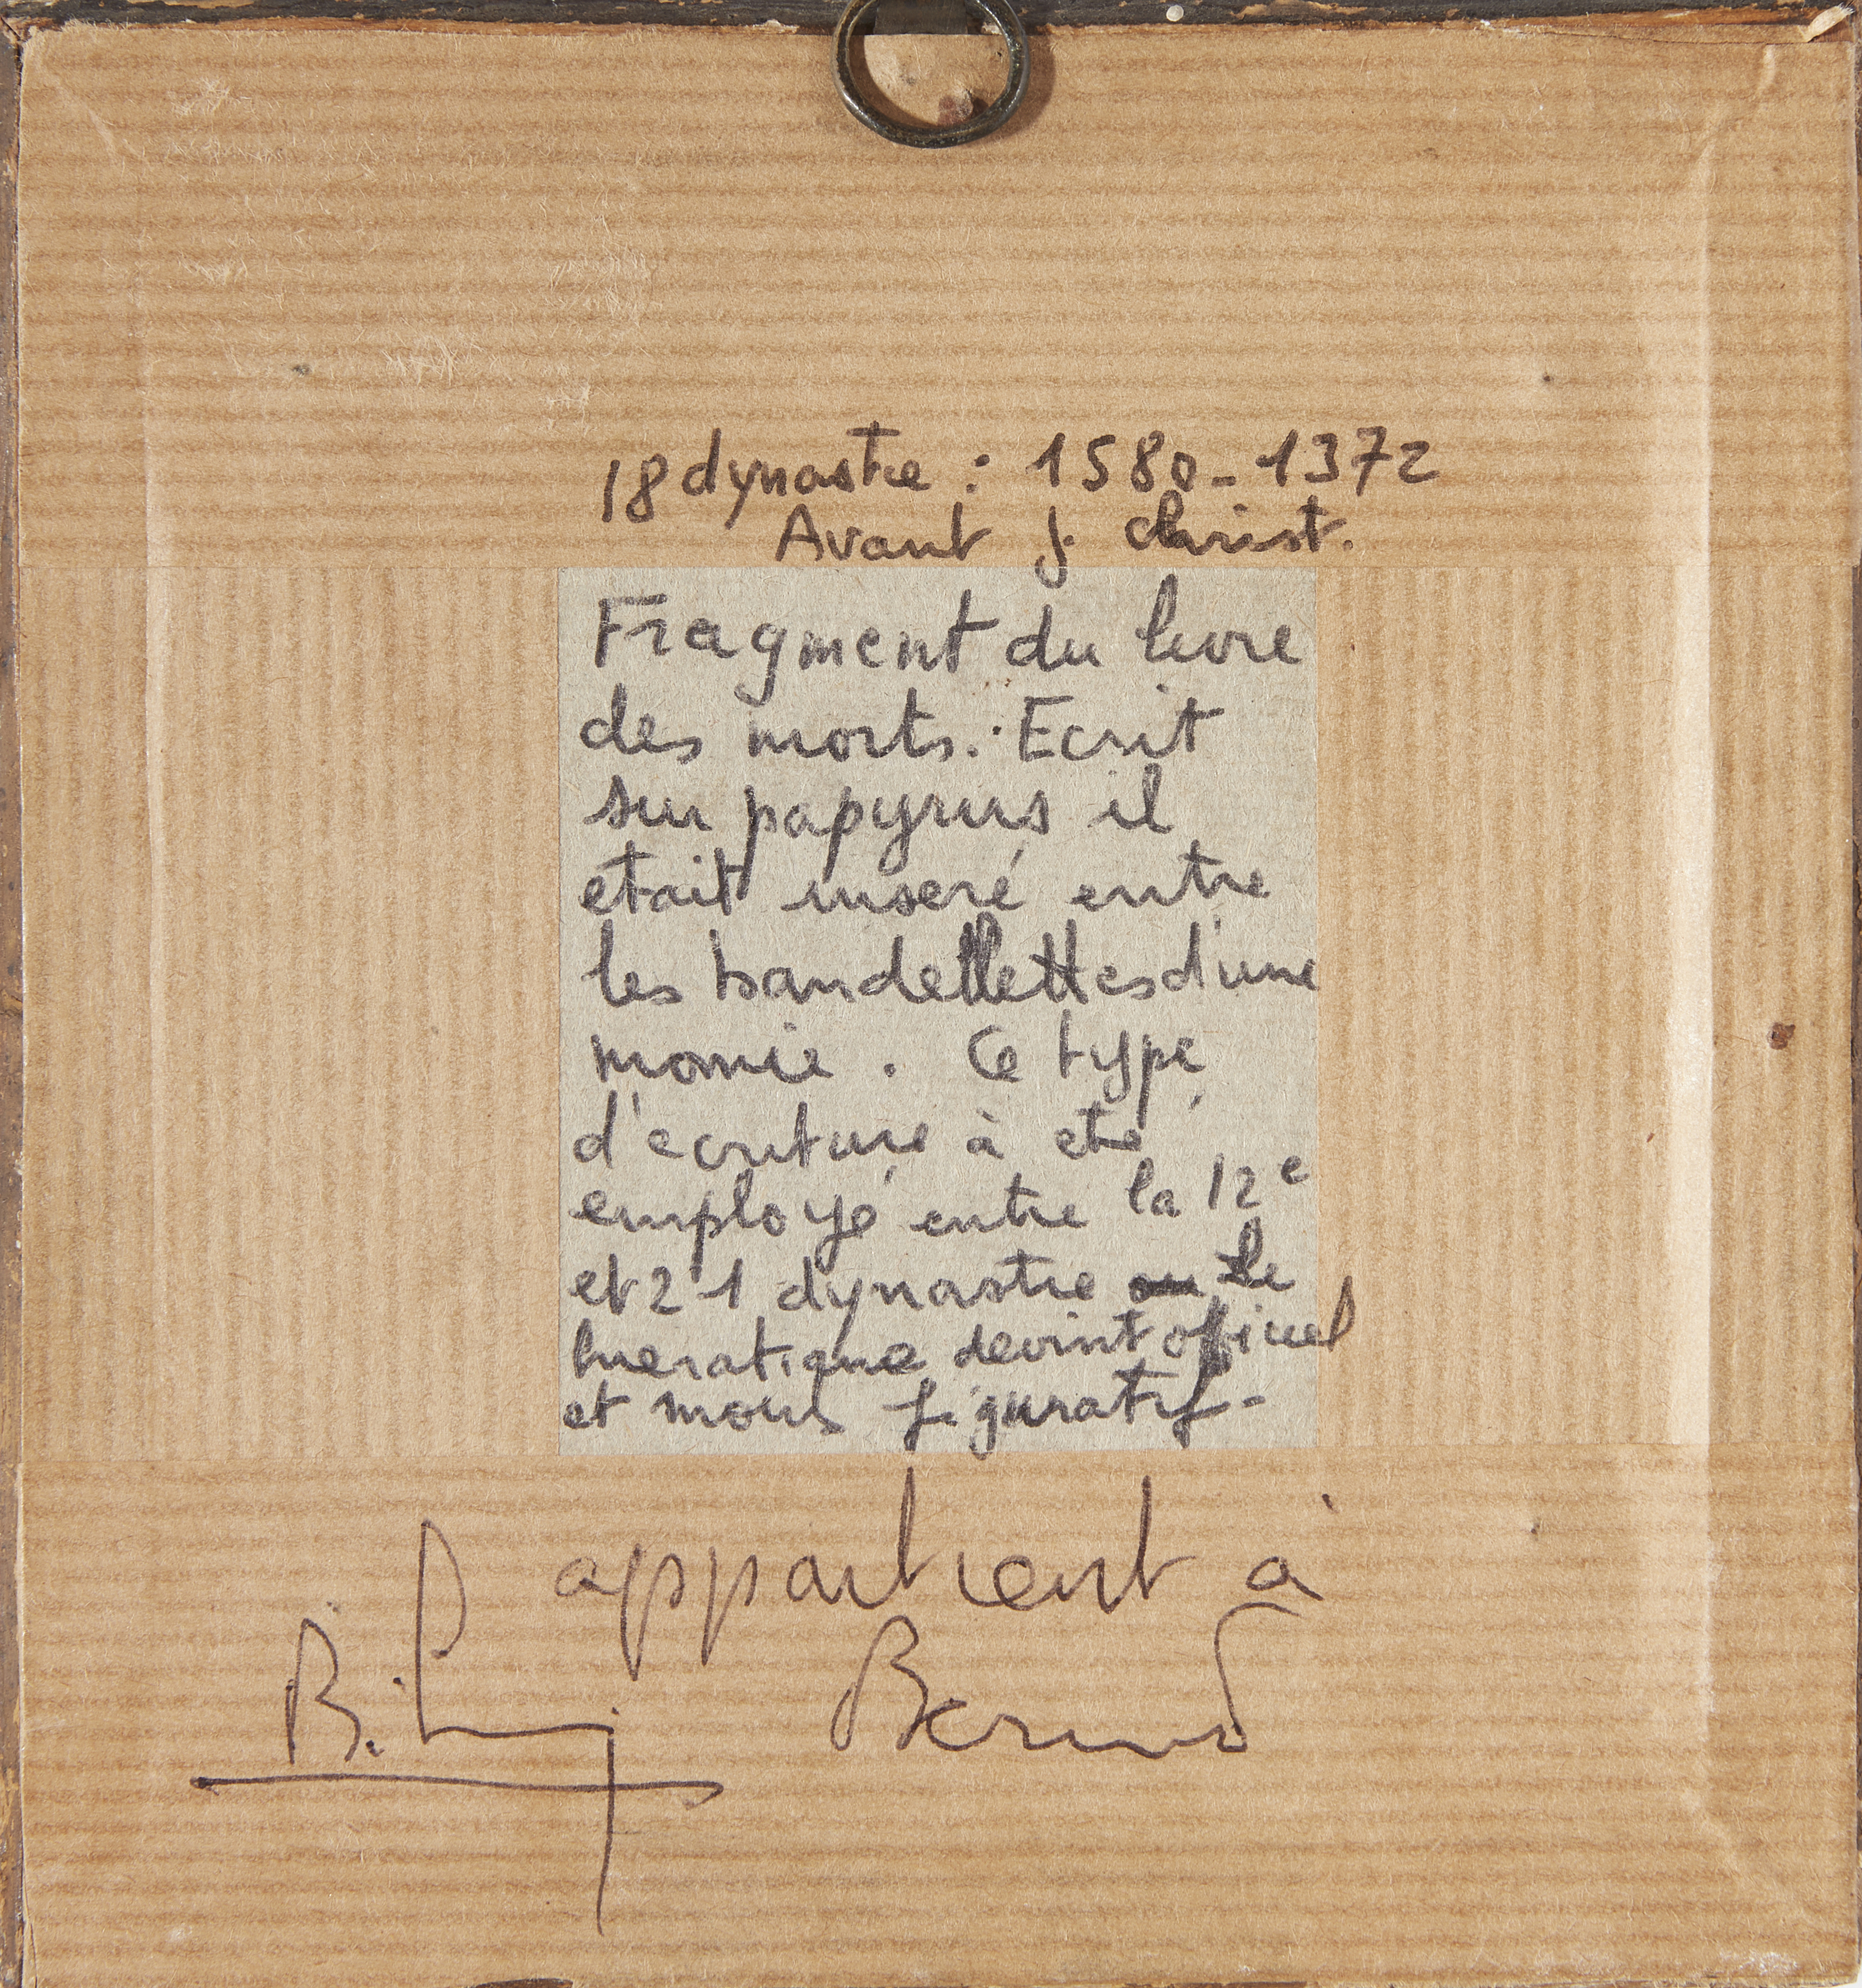 18 dynastie : 1580-1372
Avant J. Christ.
Fragment du livre
des morts. Ecrit
sur papyrus il
etait inseré entre
les bandellettes d'une
momie . Ce type
d'ecriture à eté
employé entre la 12e
et 21 dynastie ou Le
hieratique devint officiel
et moins figuratif-
appartient à
B.
Bernard